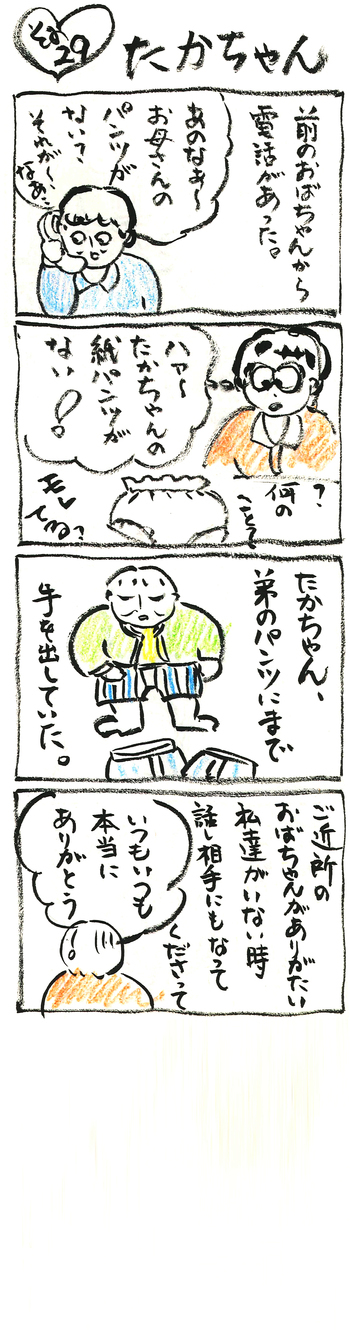 その
29
たかちゃん
前のおばちゃんから
電話があった。
あのなぁ〜
お母さんの
パンツが
ない?
それが〜、
なぁ
ハァ〜
たかちゃんの
紙パンツが
ない!
?
何の
こと?
モレ
てる?
たかちゃん、
弟のパンツにまで
手を出していた。
ご近所の
おばちゃんがありがたい
私達がいない時
話し相手にもなって
くださって
いつもいつも
本当に
ありがとう